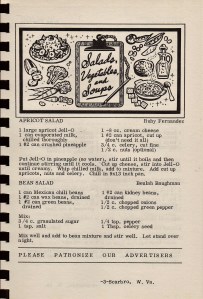 Salads,
Vegetables,
Soups
APRICOT SALAD Ruby Fernandes
1 large apricot Jell-O 1 -8 oz. cream cheese
1 can evaporated milk, 1 #2 can apricot, cut up
chilled thoroughly (don't need it all)
1 #2 can crushed pineapple 3/4 c. celery, cut fine
1/2 c. nuts (optional)
Put Jell-O in pineapple (no water), stir until it boils and then
continue until it cools. Cut up cheese, stir into Jell-O
until creamy. Whip chilled milk, add to mixture. Add cut up
apricots, nuts and celery. Chill in 9x13 inch pan.
BEAN SALAD Beulah Baughman
1 can Mexican chili beans 1 #2 can kidney beans,
1 #2 can wax beans, drained drained
1 #2 can green beans, 1/2 c. chopped onions
drained 1/2 c. chopped green pepper
Mix:
3/4 c. granulated sugar 1/4 tsp. pepper
1 tsp. salt 1 Tbsp. celery seed
Mix well and add to bean mixture and stir well. Let stand over
night.
PLEASE PATRONIZE OUR ADVERTISERS
-3-Scarbro, W. Va.